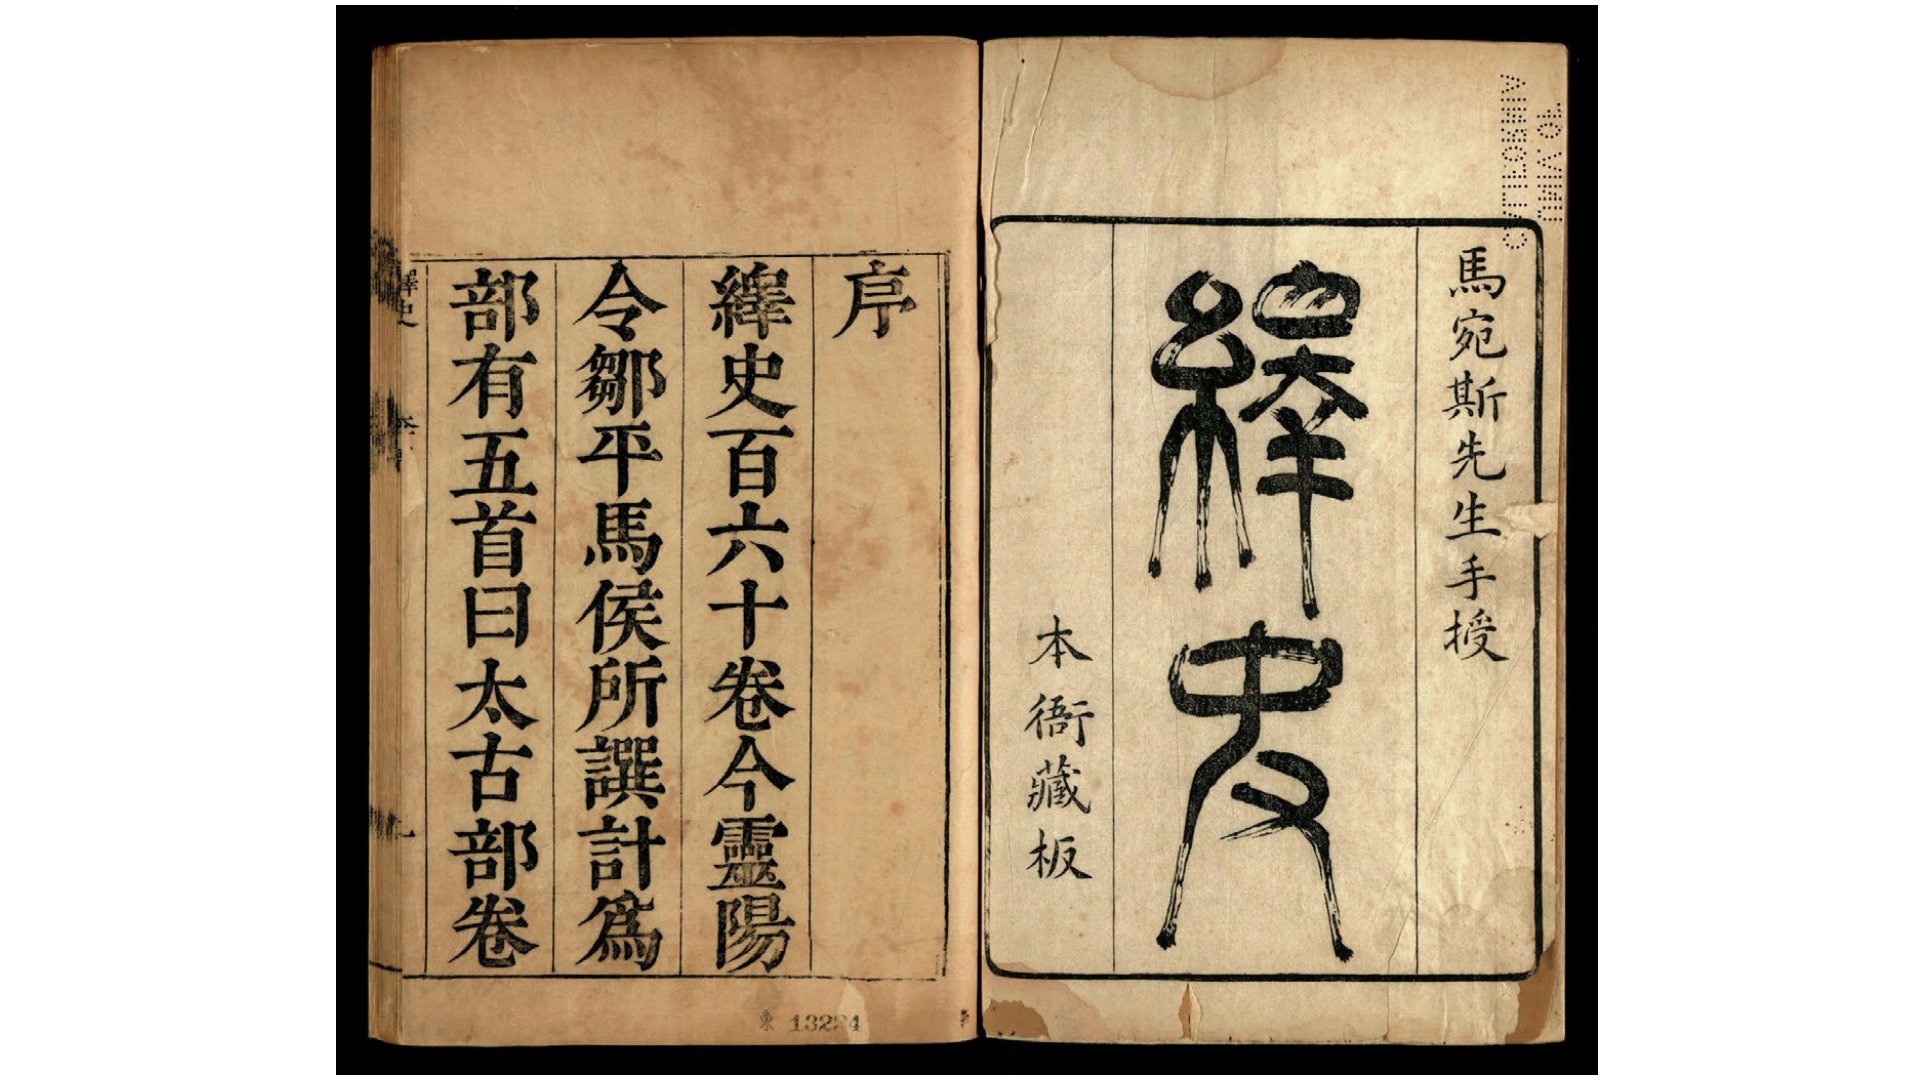 馬宛斯先生手授
繹史
本衙藏板
序
繹史百六十卷今靈陽
令鄒平馬侯所譔計為
部有五首曰太古部卷
繹史
一
東 13284
UNIV. OF
CALIFORNIA